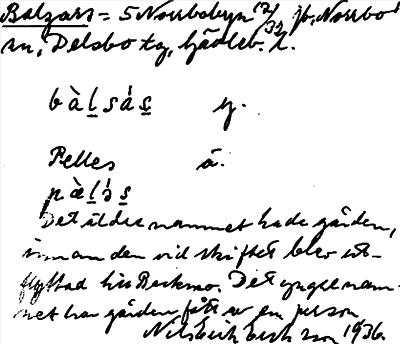 Balzars = 5 Norrbobyn 12/32 jb, Norrbo
sn, Delsbo tg, Gävleb. l.
bàl̲sás̲ y.
Pelles ä.
pæ̀l̲ɜs̲
Det äldre namnet hade gården,
innan den vid skiftet blev ut-
flyttad hit Backmo. Det yngre nam-
net har gården fått av en person
Nils Erik Eriksson 1936.